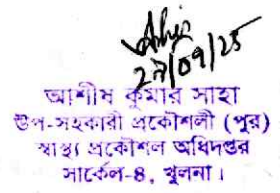 27/09/25
আশীষ কুমার সাহা
উপ-সহকারী প্রকৌশলী (পুর)
স্বাস্থ্য প্রকৌশল অধিদপ্তর
সার্কেল-৪, খুলনা।